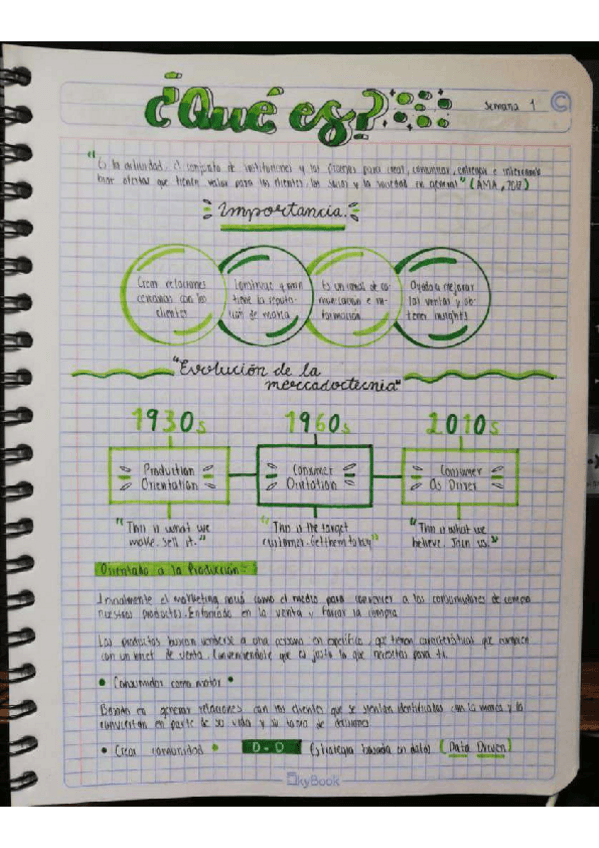 ¿Qué es?
Semana 1
"Es la actividad, el conjunto de instituciones y los procesos para crear, comunicar, entregar e intercambiar
ofertas que tienen valor para los clientes, los socios y la sociedad en general" (AMA, 2013)
Importancia.
Crear relaciones
cercanas con los
clientes
Construye y man
tiene la reputa-
ción de marca
Es un canal de co-
municación e in-
formación.
Ayuda a mejorar
las ventas y ob-
tener insights
"Evolución de la
mercadotecnia"
1930s
1960s
2010s
Production
Orientation
Consumer
Orientation
Consumer
As Driver
"This is what we
make. Sell it."
"This is the target
customer. Get them to buy"
"This is what we
believe. Join us."
Orientado a la Producción:
Inicialmente el marketing nació como el medio para convencer a los consumidores de comprar
nuestros productos. Enfocándose en la venta y forzar la compra
Los productos buscan venderse a una persona en específico, que tienen características que
con un de venta. Convenciéndole que es justo lo que necesitas para ti.
• Consumidor como motor •
Basado en generar relaciones con mis clientes que se sientan identificados con la marca y la
conviertan en parte de su vida y su toma de decisiones
• Crear comunidad • D.D Estrategia basada en datos (Data Driven)
SkyBook